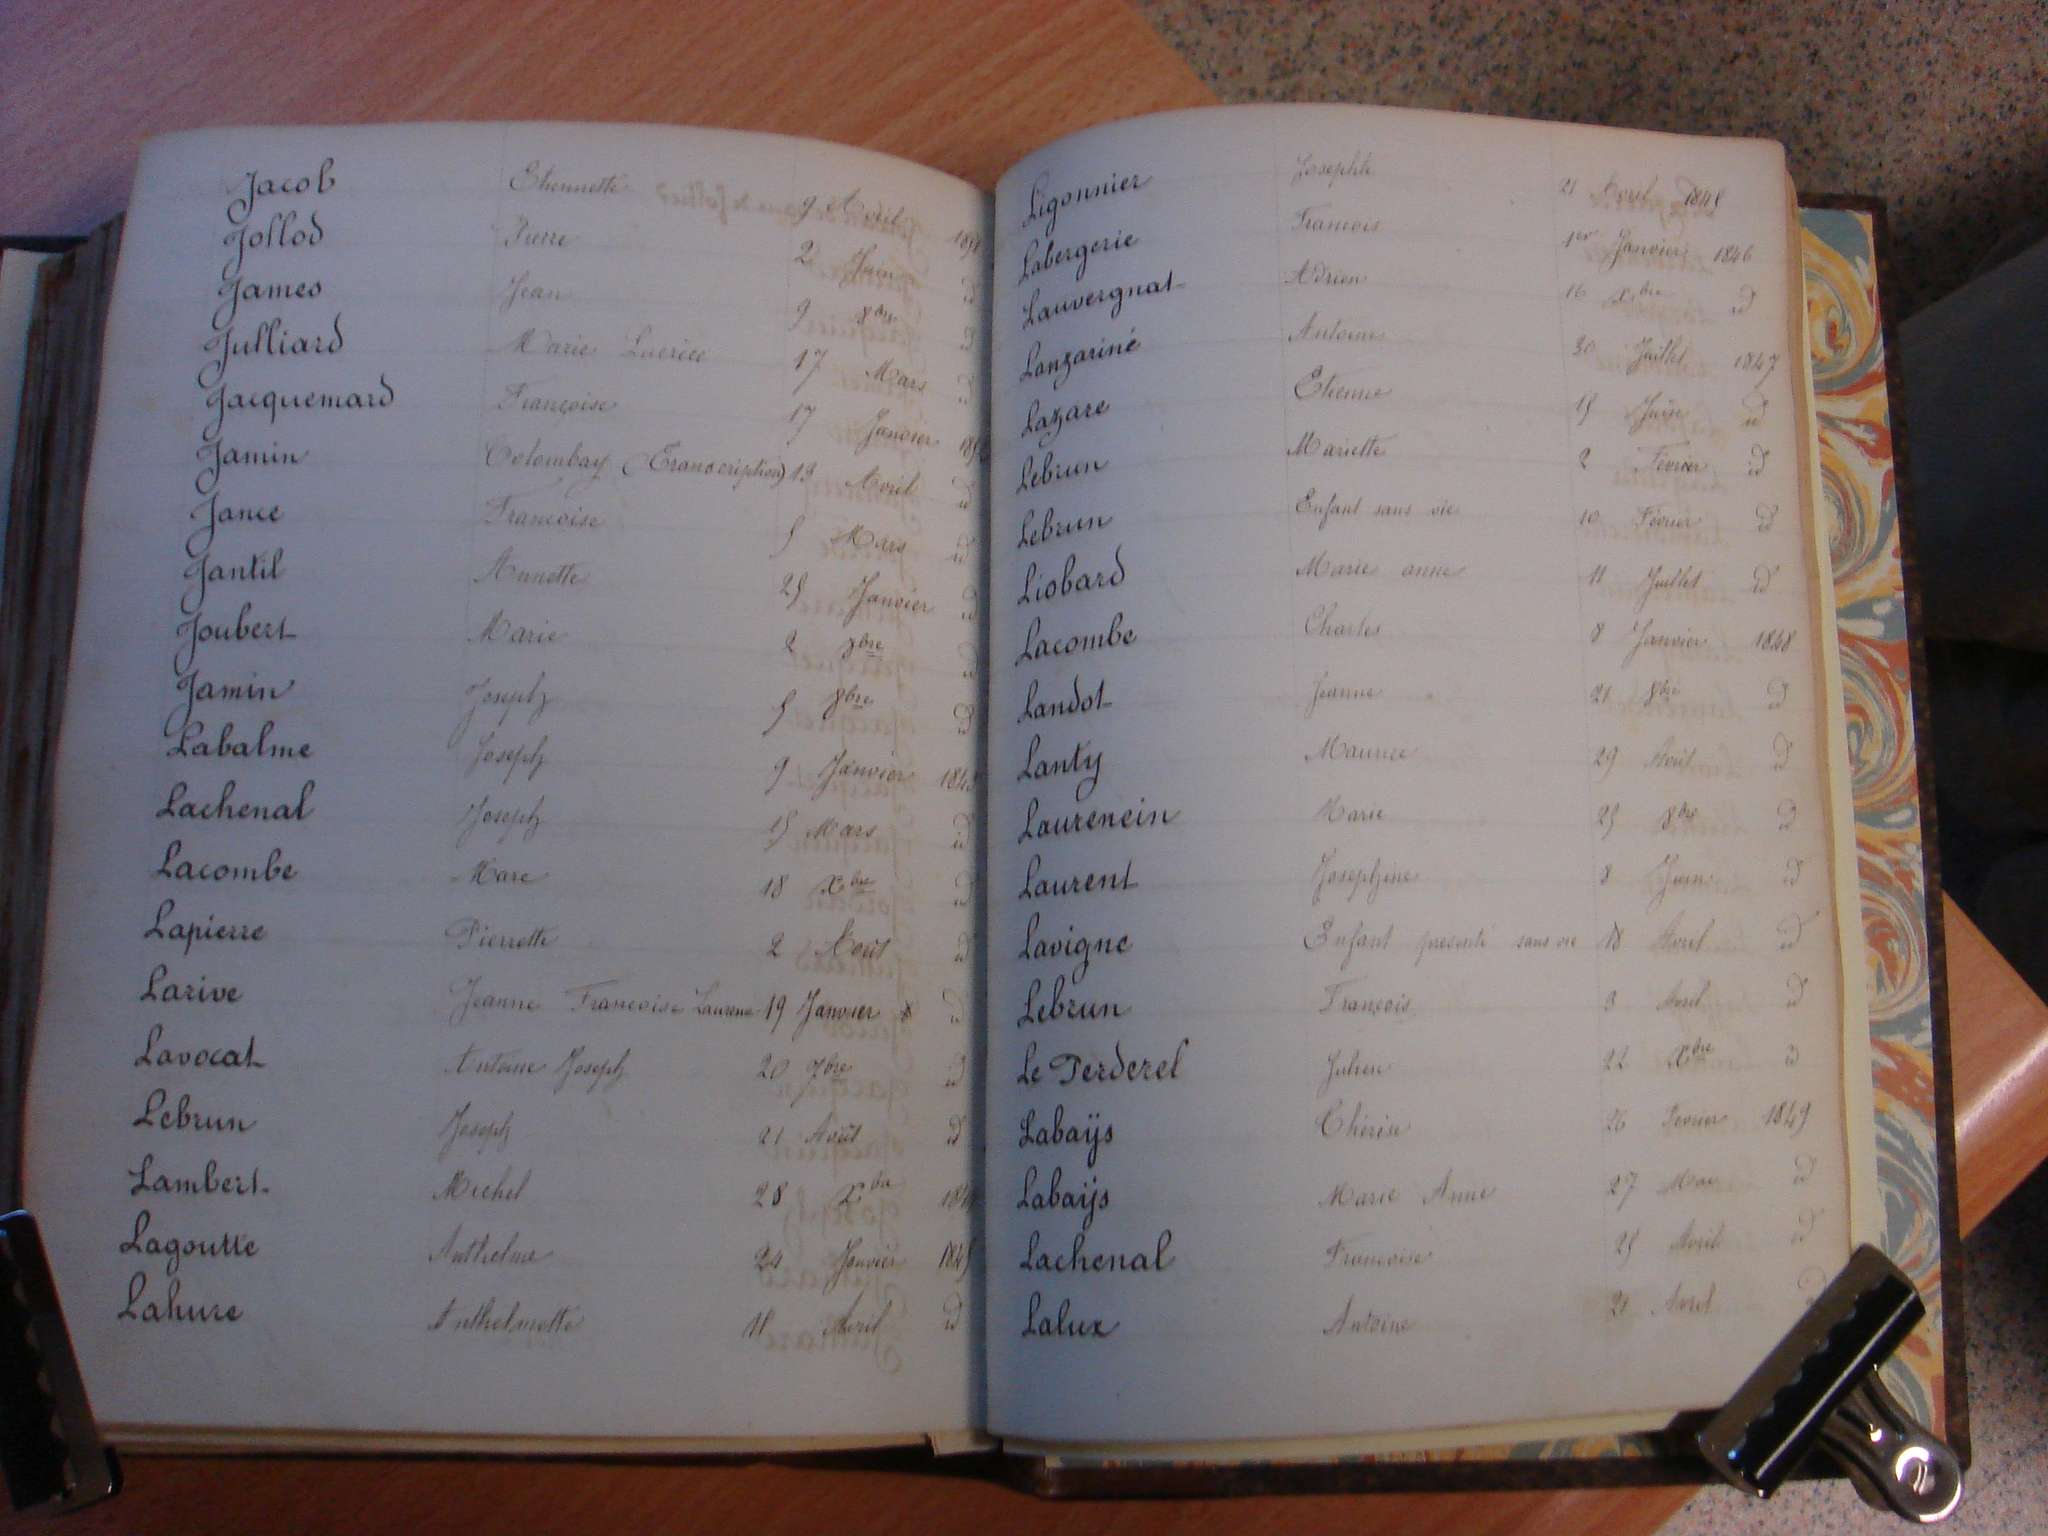 Jacob Etiennette 9 Avril
Jollod Pierre 2 Juin id
James Jean 9 8bre id
Julliard Marie Lucrèce 17 Mars id
Jacquemard Françoise 17 Janvier
Jamin Colombay (Transcription) 13 Avril id
Jance Françoise 5 Mars id
Jantil Annette 25 Janvier id
Joubert Marie 2 id
Jamin Joseph 5 8bre id
Labalme Joseph 9 Janvier 1845
Lachenal Joseph 15 Mars id
Lacombe Marc 18 Xbre id
Lapierre Pierrette 2 Août id
Larive Jeanne Françoise 19 Janvier id
Lavocat Antoine Joseph 20 7bre id
Lebrun Joseph 21 Août id
Lambert Michel 28 Xbre
Lagoutte Anthelme 24 Janvier 1845
Lahure Anthelmette 11 Avril id
Ligonnier Josephte 21 Avril 1845
Labergerie François 1er Janvier 1846
Lauvergnat Adrien 16 Xbre id
Lanzariné Antoine 30 Juillet 1847
Lazare Etienne 15 Juin id
Lebrun Mariette 2 Février id
Lebrun Enfant sans vie 10 Février id
Liobard Marie anne 11 Juillet id
Lacombe Charles 8 Janvier 1848
Landot Jeanne 21 8bre id
Lanty Maurice 29 Avril id
Laurencin Marie 25 8bre id
Laurent Josephine 8 Juin id
Lavigne Enfant presenté sans vie 18 Avril id
Lebrun François 3 Avril id
Le Perderel Julien 22 Xbre id
Labaÿs Thérèse 26 Fevrier 1849
Labaÿs Marie Anne 27 id
Lachenal Francoise 25 Avril id
Lalux Antoine 21 Avril id